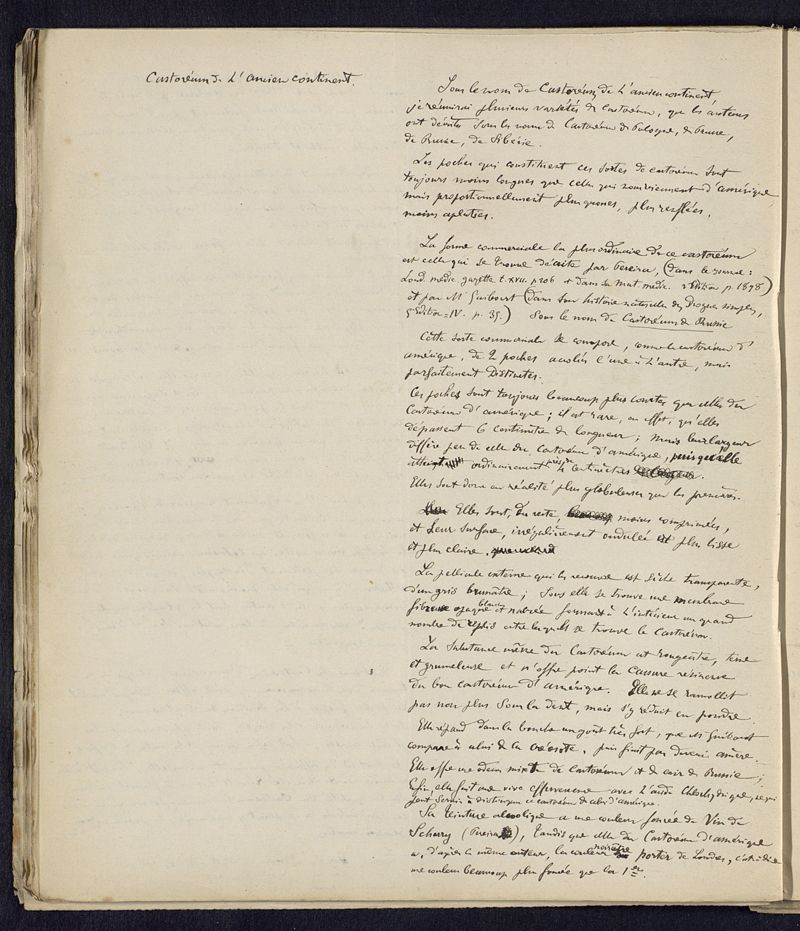 Castoréum de L'ancien continent.
Sous le nom de Castoréum de L'ancien continent,
je réunirai plusieurs variétés de castoréum, que les auteurs
ont décrites sous les noms de Castoréum de Pologne, de Prusse,
de Russie, de Sibérie.
Les poches qui constituent ces sortes de castoréum sont
toujours moins longues que celles qui nous viennent d'amérique
mais proportionnellement plus grosses, plus renflées,
moins aplaties.
La forme commerciale la plus ordinaire de ce castoréum
est celle qui se trouve décrite par Pereira, (dans le journal:
Lond. medic. gazette t. XVII. p 206 et dans sa mat. medic. 2 Edition p. 1878)
et par Mr Guibourt (dans son histoire naturelle des Drogues simples,
5e Edition = IV. p. 35.) Sous le nom de Castoréum de Russie
Cette sorte commerciale se compose, comme le castoréum d'
amérique, de 2 poches accolées l'une à L'autre, mais
parfaitement distinctes.
Ces poches sont toujours beaucoup plus courtes que celles du
Castoréum d'amérique; il est rare, en effet, qu'elles
dépassent 6 centimètres de longueur; mais leur largeur
diffère peu de celle du castoréum d'amérique, puisqu'elle
atteint ordinairement 4 centimètres
Elles sont donc en réalité plus globuleuses que les premières.
Elles sont, du reste, moins comprimées,
et leur surface, irrégulièrement ondulée est plus lisse
et plus claire.
La pellicule externe qui les recouvre est sèche transparente,
d'un gris brunâtre; sous elle se trouve une membrane
fibreuse opaque blanche et nacrée formant à L'intérieur un grand
nombre de replis entre lesquels se trouve le Castoréum.
La Substance même du Castoréum est rougeâtre, terne
et grumeleuse et n'offre point la cassure résineuse
du bon castoréum d'amérique. Elle ne se ramollit
pas non plus sous la dent, mais s'y réduit en poudre.
Elle répand dans la bouche un goût très fort, que Mr Guibourt
compare à celui de la créosote, puis finit par devenir amère.
Elle offre une odeur mixte de castoréum et de cuir de Russie;
Enfin, elle fait une vive effervescence avec L'acide Chlorhydrique, ce qui
peut servir à distinguer ce castoréum de celui d'amérique.
Sa teinture alcoolique a une couleur foncée de Vin de
Scherry (Pereira), tandis que celle du Castoréum d'amérique
a, d'après le même auteur, la couleur noirâtre du porter de Londres, c'est-à-dire
une couleur beaucoup plus foncée que la 1ère.